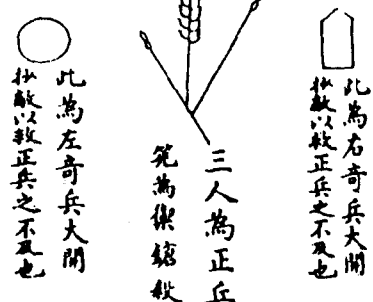 此為右奇兵大開
抄敵以救正兵之不及也
三人為正兵
筅為禦鎗殺
此為左奇兵大開
抄敵以救正兵之不及也